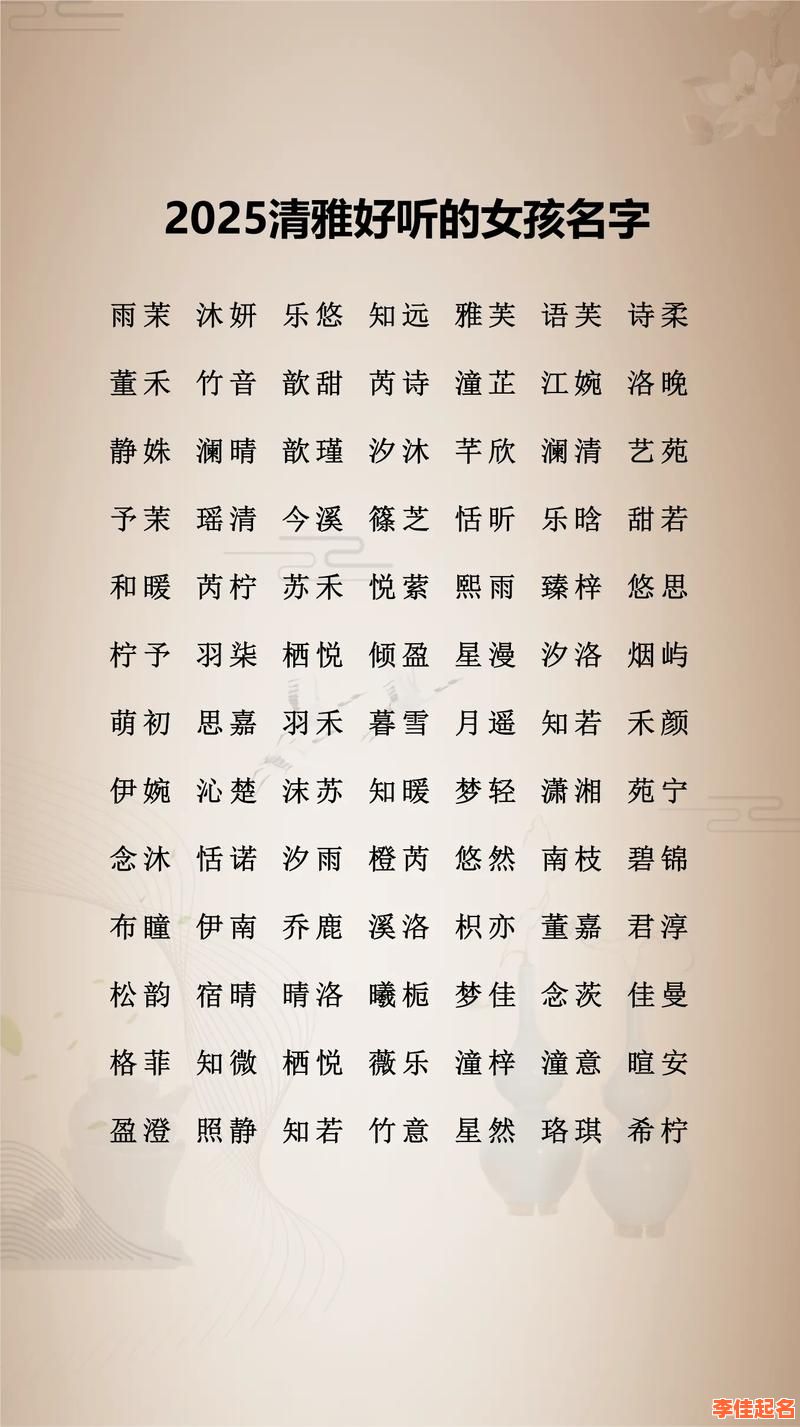 2025清雅好听的女孩名字
雨茉 沐妍 乐悠 知远 雅芙 语芙 诗柔
董禾 竹音 歆甜 芮诗 潼芷 江婉 洛晚
静姝 澜晴 歆瑾 汐沐 芊欣 澜清 艺苑
予茉 瑶清 今溪 篠芝 恬昕 乐晗 甜若
和暖 芮柠 苏禾 悦萦 熙雨 臻梓 悠思
柠予 羽柒 栖悦 倾盈 星漫 汐洛 烟屿
萌初 思嘉 羽禾 暮雪 月遥 知若 禾颜
伊婉 沁楚 沫苏 知暖 梦轻 潇湘 苑宁
念沐 恬诺 汐雨 橙芮 悠然 南枝 碧锦
布瞳 伊南 乔鹿 溪洛 枳亦 董嘉 君淳
松韵 宿晴 晴洛 曦栀 梦佳 念茨 佳曼
格菲 知微 栖悦 薇乐 潼梓 潼意 暄安
盈澄 照静 知若 竹意 星然 珞琪 希柠
李佳起名